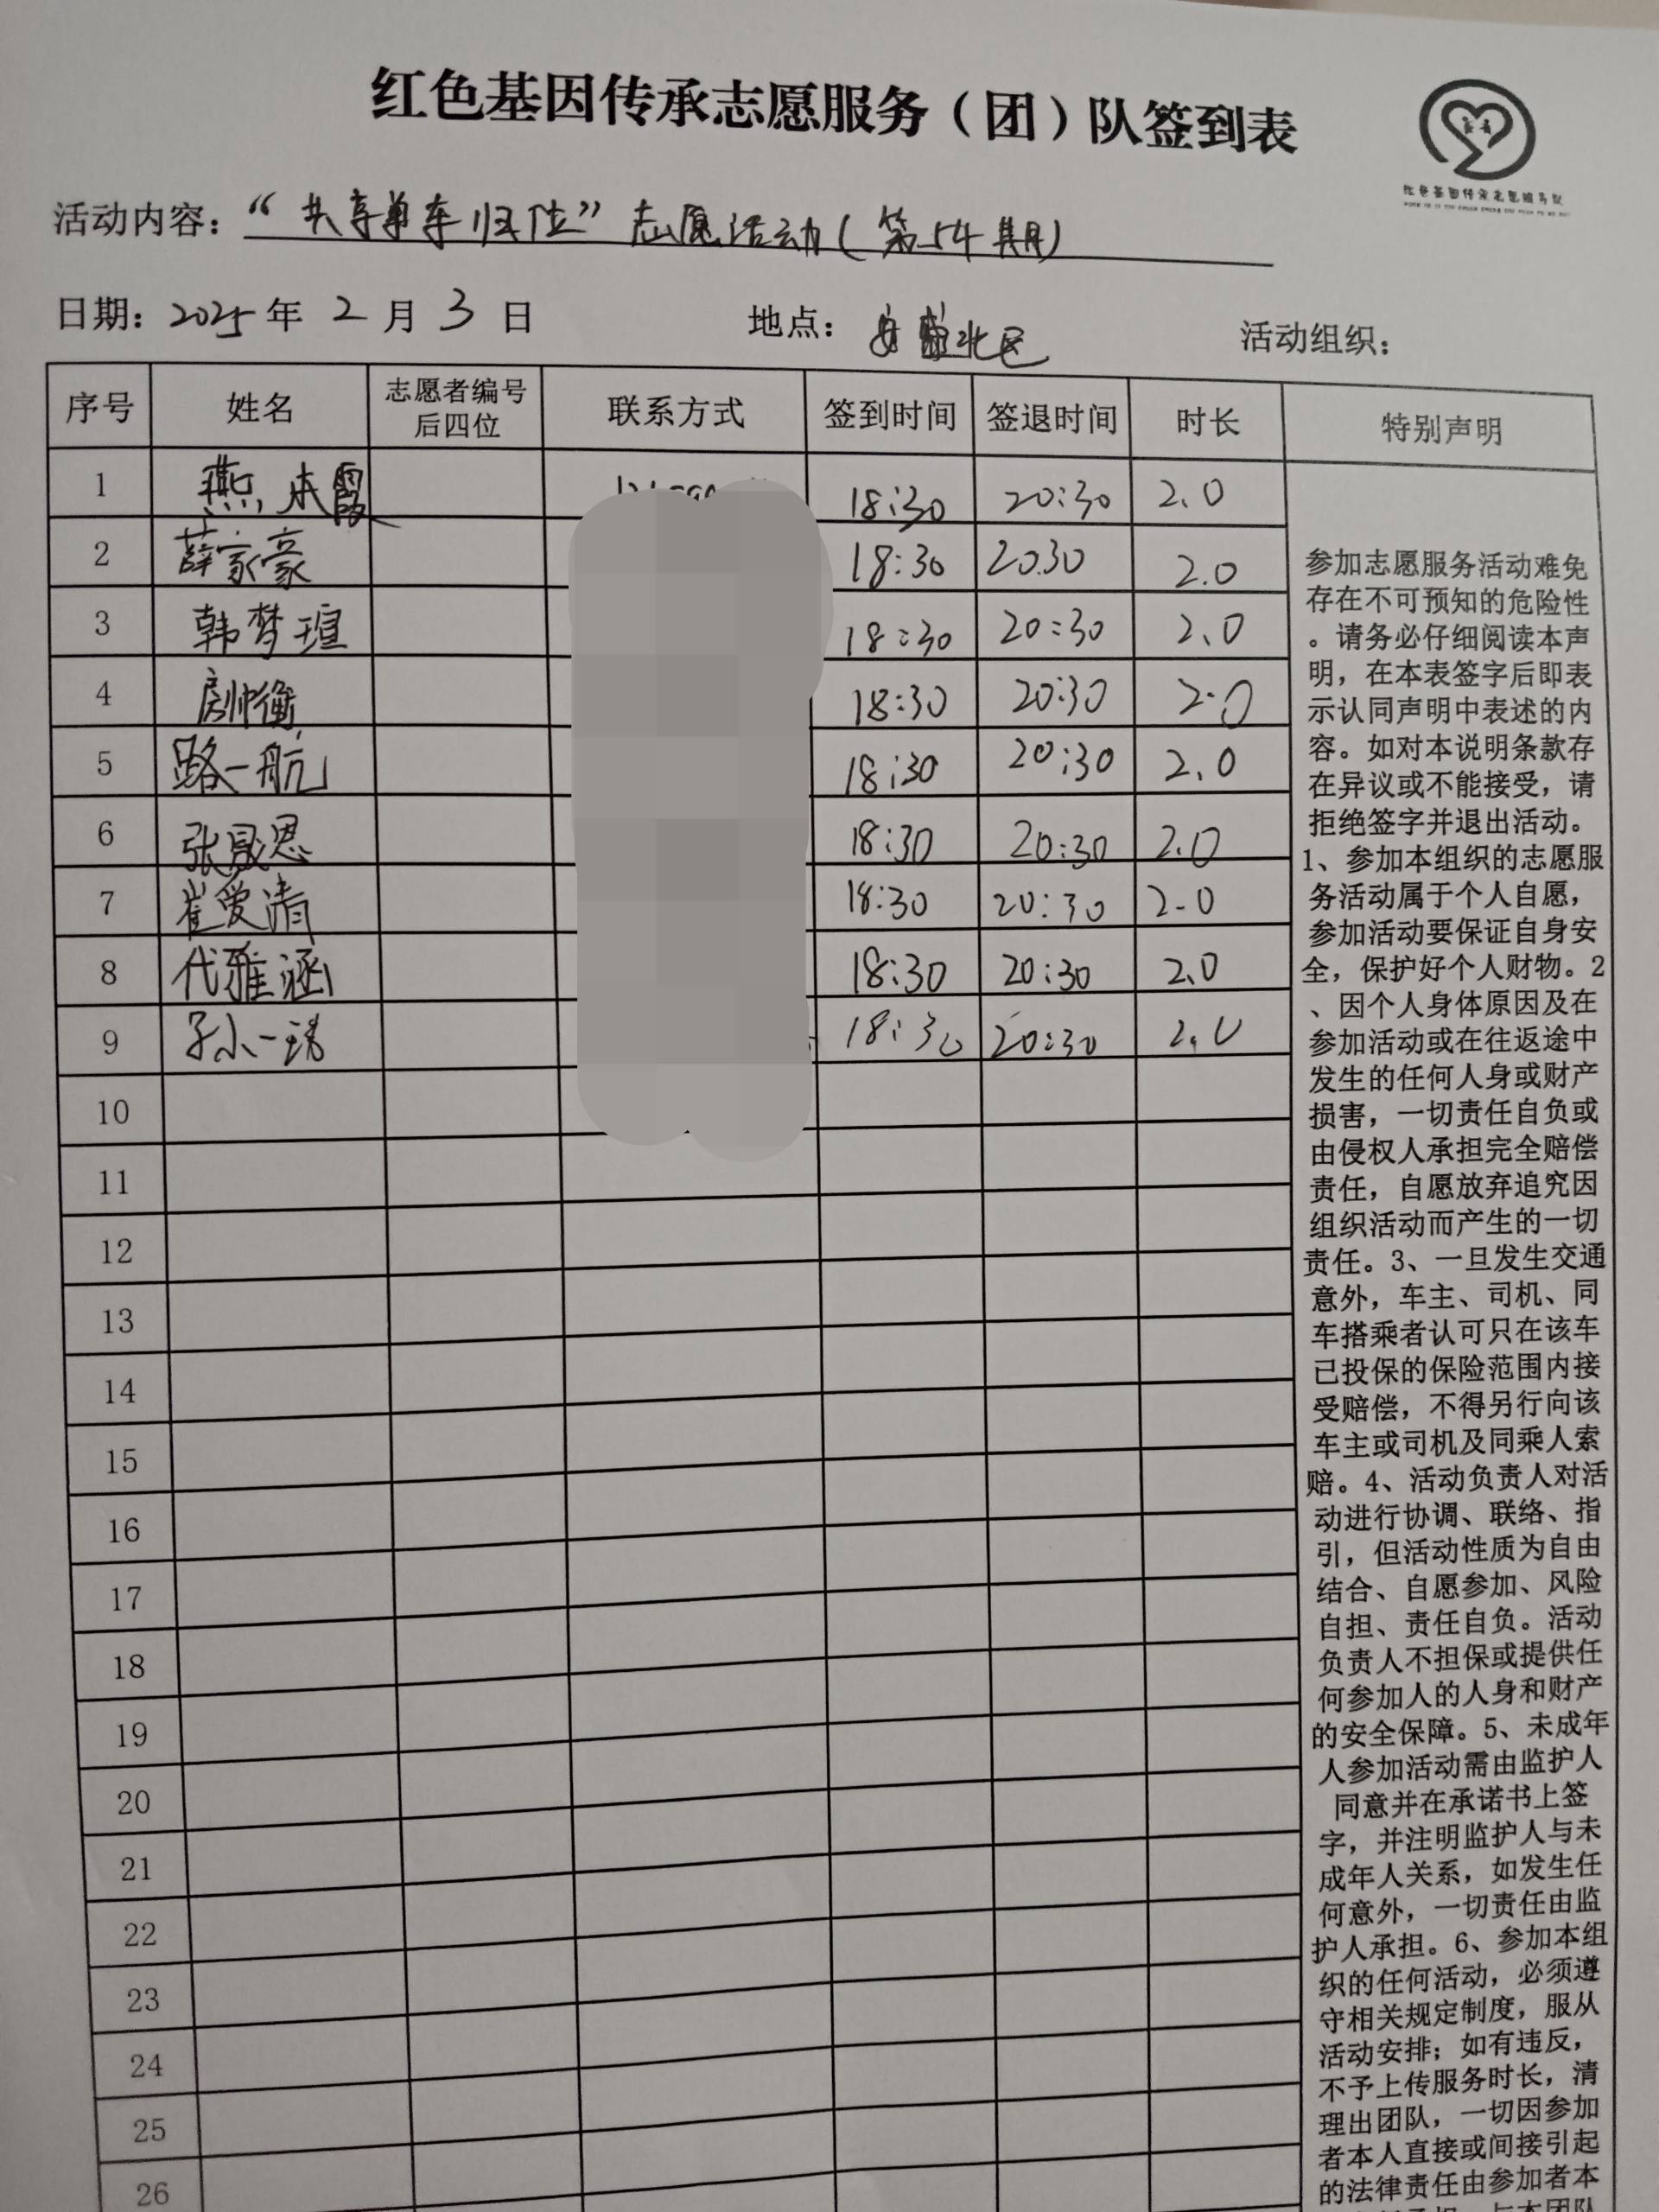 红色基因传承志愿服务（团）队签到表
红色基因传承志愿服务队
活动内容：“共享单车归位”志愿活动（第54期）
日期：2025年2月3日 地点：北区 活动组织：
序号 姓名 志愿者编号后四位 联系方式 签到时间 签退时间 时长 特别声明
1 燕本霞 18:30 20:30 2.0
2 薛家豪 18:30 20.30 2.0
3 韩梦瑄 18:30 20:30 2.0
4 房帅衡 18:30 20:30 2.0
5 路一航 18:30 20:30 2.0
6 张晟恩 18:30 20:30 2.0
7 崔爱清 18:30 20:30 2.0
8 代雅涵 18:30 20:30 2.0
9 18:30 20:30 2.0
10
11
12
13
14
15
16
17
18
19
20
21
22
23
24
25
26
参加志愿服务活动难免
存在不可预知的危险性
。请务必仔细阅读本声
明，在本表签字后即表
示认同声明中表述的内
容。如对本说明条款存
在异议或不能接受，请
拒绝签字并退出活动。
1、参加本组织的志愿服
务活动属于个人自愿，
参加活动要保证自身安
全，保护好个人财物。2
、因个人身体原因及在
参加活动或在往返途中
发生的任何人身或财产
损害，一切责任自负或
由侵权人承担完全赔偿
责任，自愿放弃追究因
组织活动而产生的一切
责任。3、一旦发生交通
意外，车主、司机、同
车搭乘者认可只在该车
已投保的保险范围内接
受赔偿，不得另行向该
车主或司机及同乘人索
赔。4、活动负责人对活
动进行协调、联络、指
引，但活动性质为自由
结合、自愿参加、风险
自担、责任自负。活动
负责人不担保或提供任
何参加人的人身和财产
的安全保障。5、未成年
人参加活动需由监护人
同意并在承诺书上签
字，并注明监护人与未
成年人关系，如发生任
何意外，一切责任由监
护人承担。6、参加本组
织的任何活动，必须遵
守相关规定制度，服从
活动安排；如有违反，
不予上传服务时长，清
理出团队，一切因参加
者本人直接或间接引起
的法律责任由参加者本